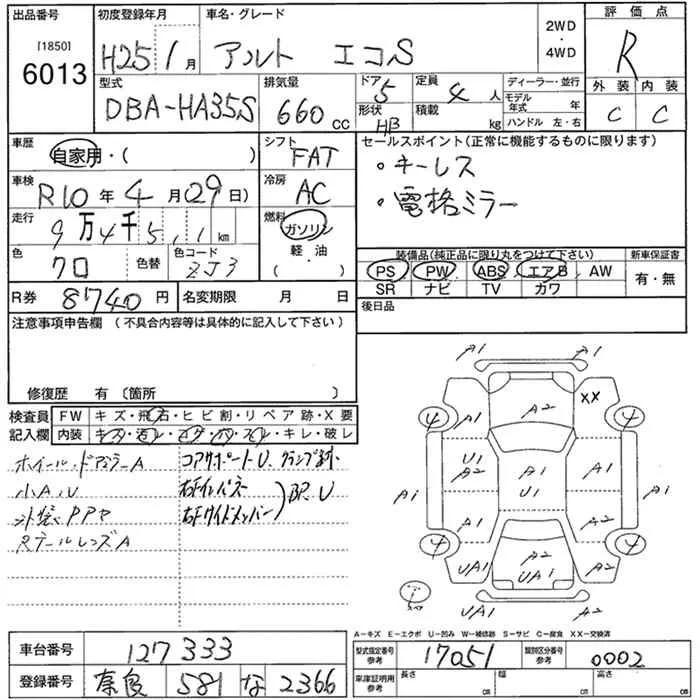 出品番号 初度登録年月 車名・グレード 2WD・4WD 評価点
[1850] 6013 H25 1月 アルト エコS R
型式 排気量 ドア 定員 ディーラー・並行 外装 内装
DBA-HA35S 660cc 5 4人 モデル年式 年 C C
形状 HB 積載 kg ハンドル 左・右
車歴 シフト セールスポイント(正常に機能するものに限ります)
自家用・( ) FAT ・キーレス
車検 冷房 ・電格ミラー
R10年4月29日) AC
走行 燃料
9万4千5,1km ガソリン
色 色替 色コード 軽・油
クロ ZJ3 ( )
装備品(純正品に限り丸をつけて下さい) 新車保証書
PS PW ABS エアB AW 有・無
SR ナビ TV カワ
R券 8740円 名変期限 月 日 後日品
注意事項申告欄(不具合内容等は具体的に記入して下さい)
修復歴 有〔箇所 〕
検査員 FW キズ・飛石・ヒビ割・リペア跡・X要
記入欄 内装 キズ・汚レ・コゲ・穴・スレ・キレ・破レ
コアサポートU、クランプ
小A、U 右Fインパネ
右Fサイドメンバー )BP、U
RテールレンズA
A1 A1
A1 A2 XX
4 4
U1 A2 A1 A1
A1 A1
A1 U1 A2
4 4
UA1 A2 UA1 A2
UA1 A2
A-キズ E-エクボ U-凹み W-補修跡 S-サビ C-腐食 XX-交換済
車台番号 127333 型式指定番号 参考 17051 類別区分番号 参考 0002
登録番号 奈良 581 な 2366 車庫証明用 参考 長さ cm 幅 cm 高さ cm